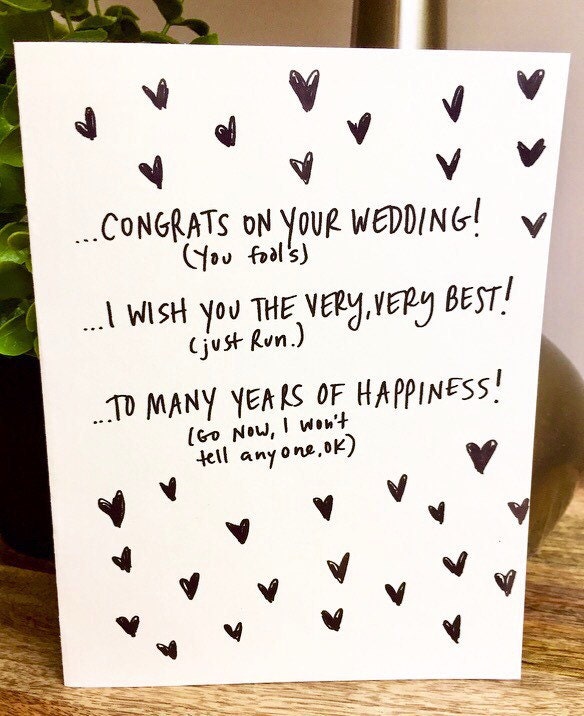 ...CONGRATS ON YOUR WEDDING!
(You fools)
...I WISH YOU THE VERY, VERY BEST!
(just Run.)
...TO MANY YEARS OF HAPPINESS!
(Go Now, I won't
tell anyone, OK)